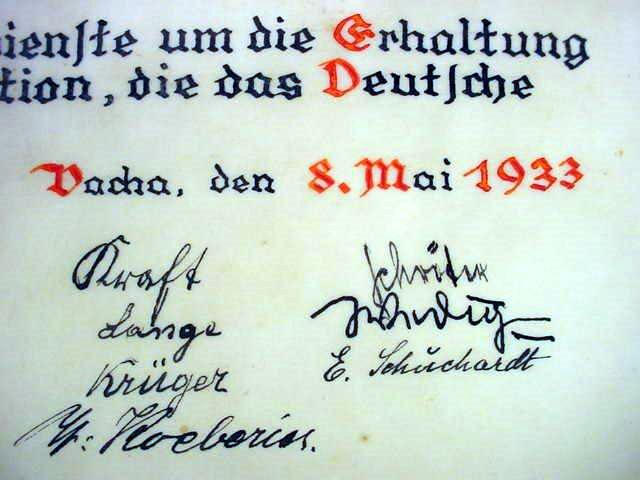 ienste um die Erhaltung
tion, die das Deutsche
Vacha, den 8. Mai 1933
Kraft Schröter
Lange
Krüger E. Schuchardt